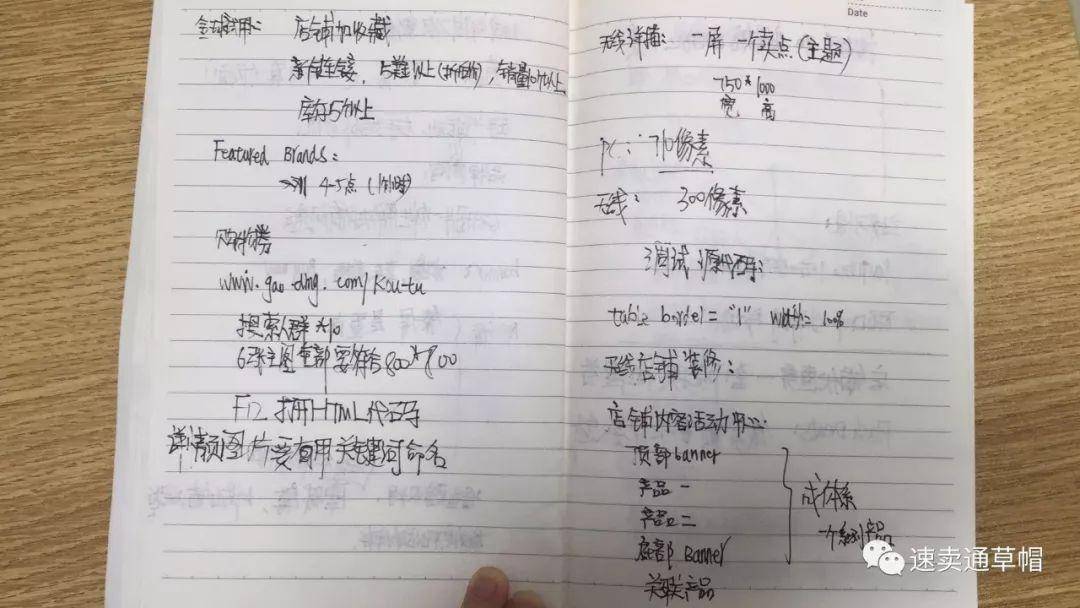 全球试用: 店铺加收藏
新链接, 5美金以上(折后价), 销量10个以上
库存5个以上
Featured Brands:
4-5点 (1小时)
购物券
www.gaoding.com/kou-tu
搜索人群*10
6张主图全部要符合800*800
F12 打开HTML代码
详情页图片要有用关键词命名
Date
无线详描: 一屏一个卖点(主题)
750*1000
宽 高
PC: 710像素
无线: 300像素
调试源代码:
table border="1" width=100%
无线店铺装修:
店铺内容活动中心:
顶部banner
产品一
产品二
底部Banner
关联产品
成体系
一个系列产品
速卖通草帽